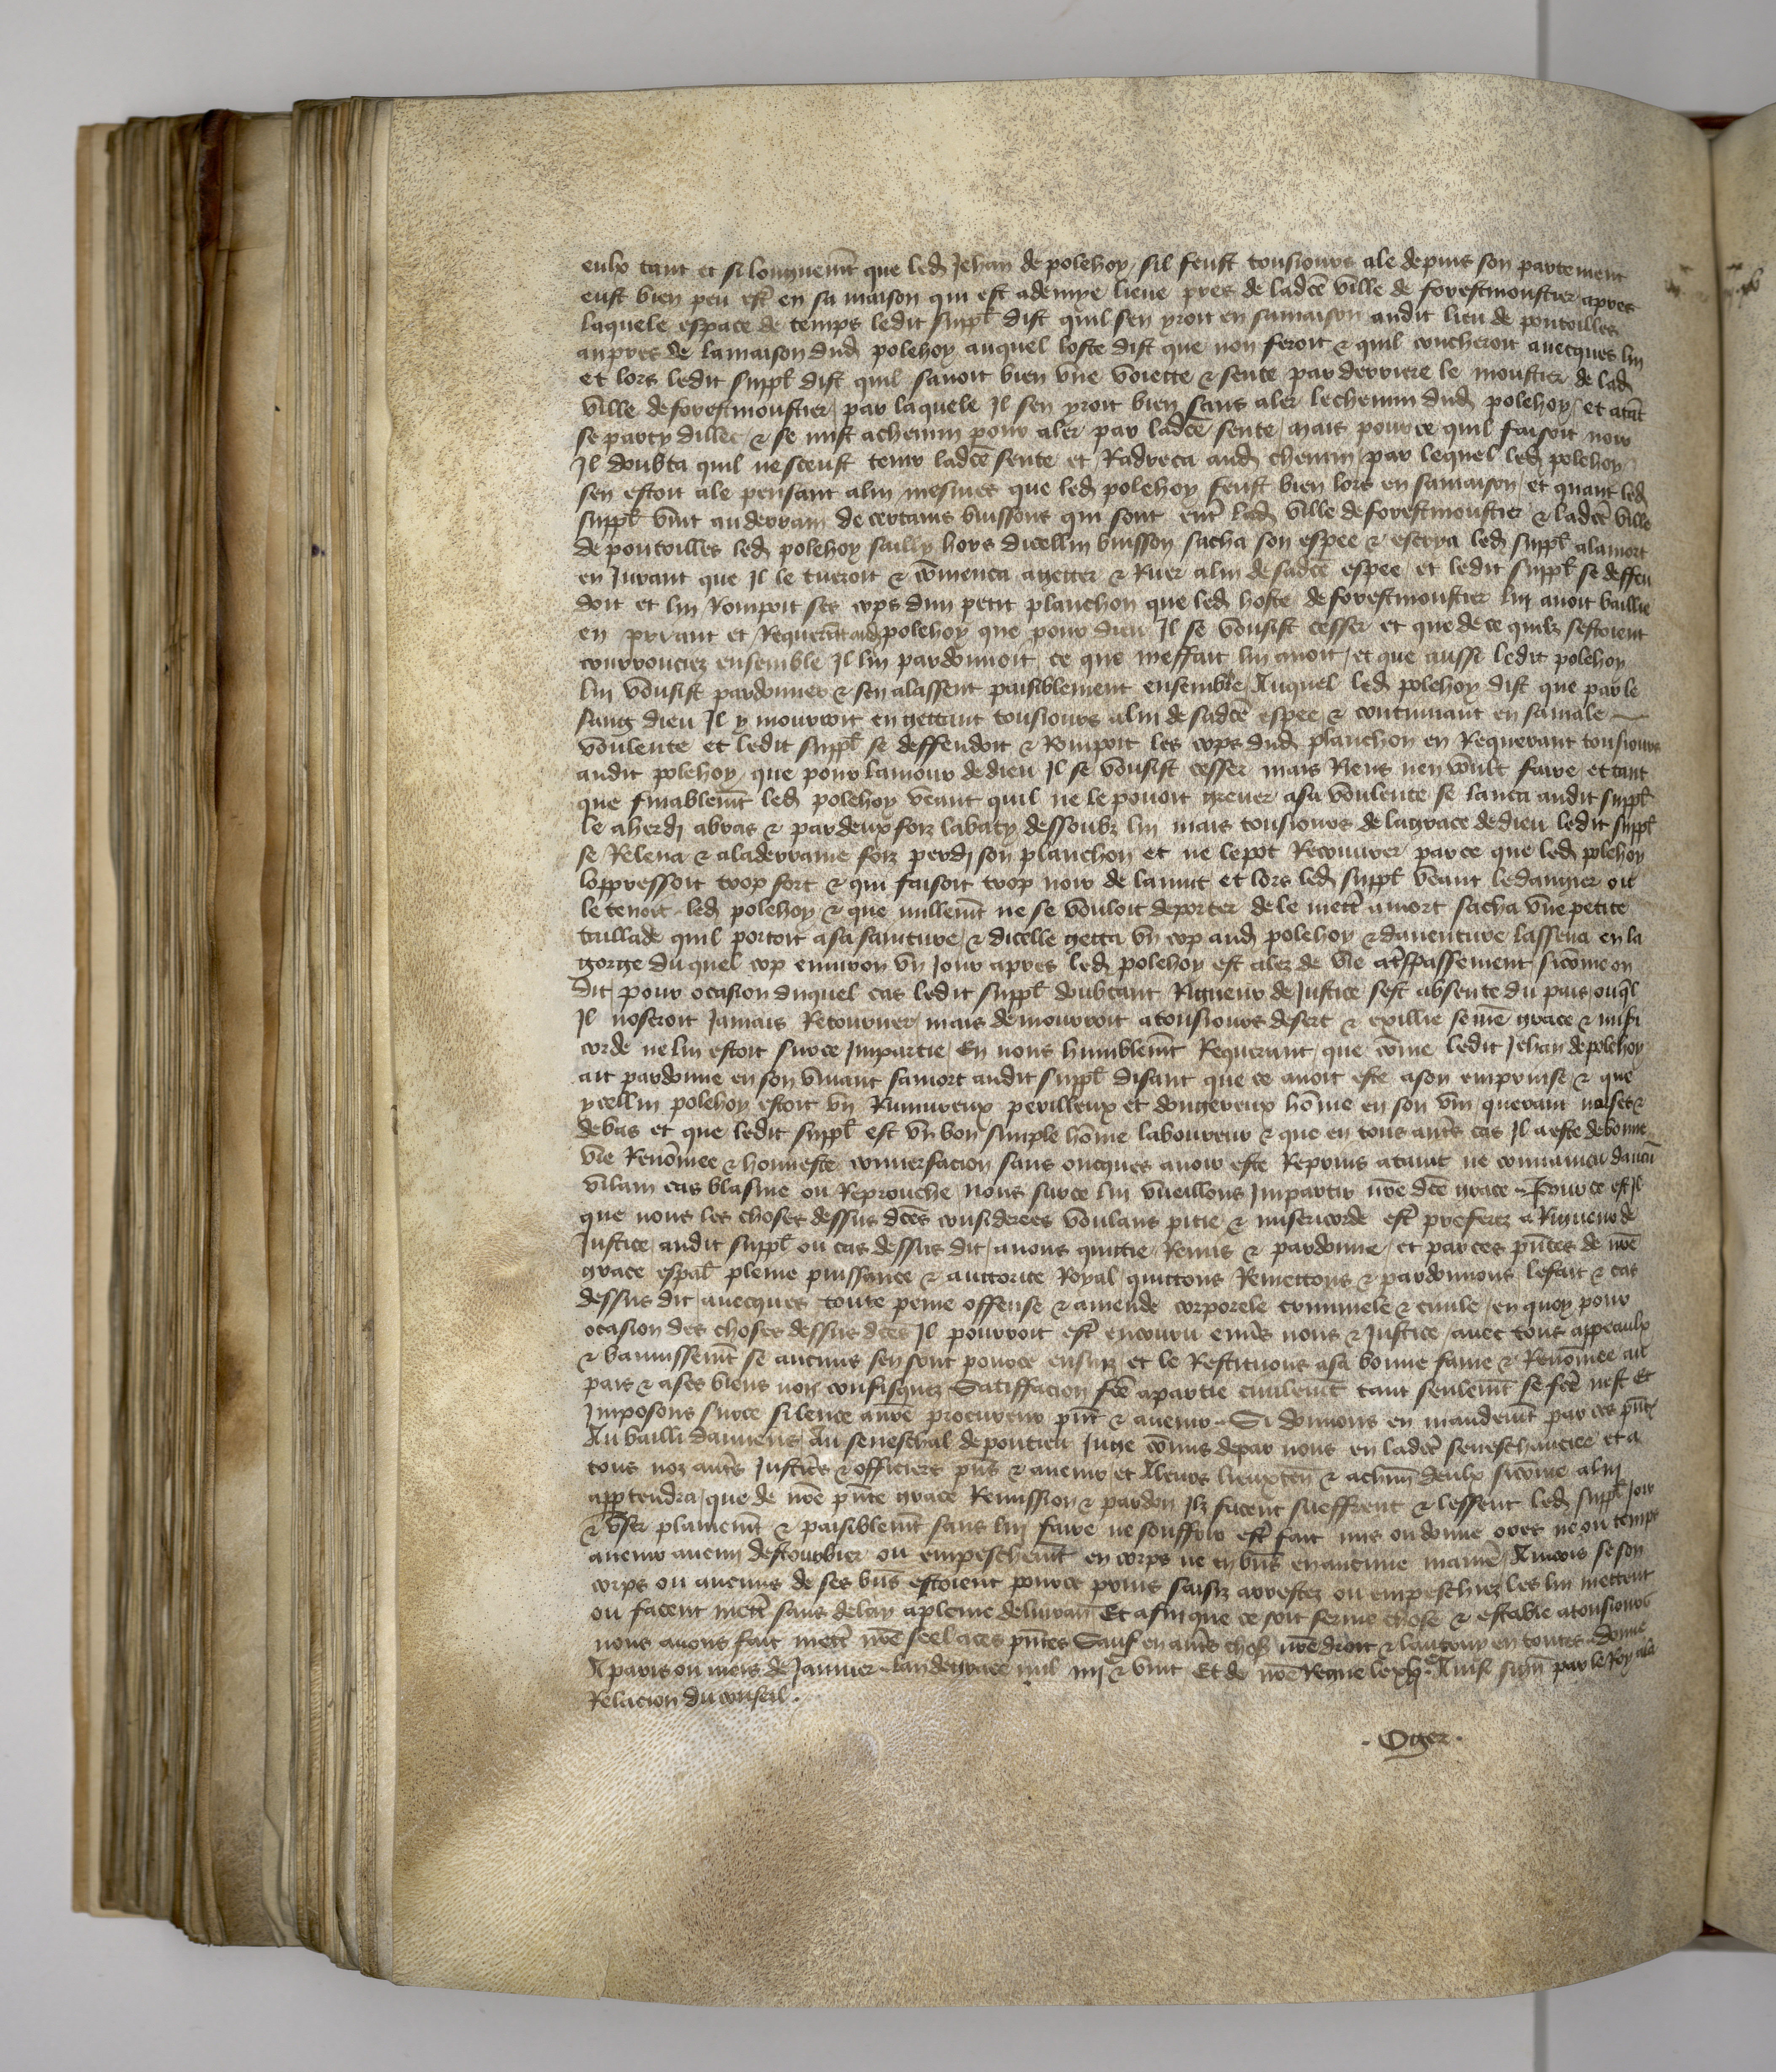 eulx tant et si longuemēt que led Jehan de polehoy sil feust tousiours ale depuis son partement
eust bien peu estr̄ en sa maison qui est ademye lieue pres de ladcē ville de forestmoustier apres
laquele espace de temps ledit suppl̄ dist quil sen yroit en samaison audit lieu de pontoilles
aupres de lamaison dud polehoy auquel loste dist que non feroit & quil coucheroit auecques lui
et lors ledit suppl̄ dist quil sauoit bien vne voiette & sente par derriere le moustier de lad
ville de forestmoustier par laquele Il sen yroit bien sans aler lechemin dud polehoy et atāt
se party dillec & se mist achemin pour aler par ladcē sente mais pource quil faisoit noir
Il doubta quil ne sceust tenir ladcē sente et Radreca aud chemin par lequel led polehoy
sen estoit ale pensant alui mesmes que led polehoy feust bien lors en samaison et quant led
suppl̄ vint au derrain de certains buissons qui sont entr̄ lad ville de forestmoustier & ladcē ville
de pontoilles led polehoy sailly hors dicellui buisson sacha son espee & escrya led suppl̄ alamort
en Jurant que Il le tueroit & cōmenca agetter & Ruer alui de sadcē espee et ledit suppl̄ se deffen
doit et lui Rompoit ses cops dun petit planchon que led hoste de forestmoustier lui auoit baillie
en priant et Requerāt aud polehoy que pour dieu Il se voulsist cesser et que de ce quilz sestoient
courrouciez ensemble Il lui pardonnoit ce que meffait lui auoit et que aussi ledit polehoy
lui voulsist pardonner & sen alassent paisiblement ensemble Auquel led polehoy dist que par le
sang dieu Il y mourroit en gettant tousiours alui de sadcē espee & continuant en samale
voulente et ledit suppl̄ se deffendoit & Rompoit les cops dud planchon en Requerant tousiours
audit polehoy que pour lamour de dieu Il se voulsist cesser mais Riens nen voult faire et tant
que finablemēt led polehoy veant quil ne le pouoit greuer asa voulente se lanca audit suppl̄
le aherdi abras & par deux foiz labaty dessoubz lui mais tousiours de lagrace dedieu ledit suppl̄
se Releua & aladerraine foiz perdi son planchon et ne lepot Recouurer parce que led polehoy
loppressoit trop fort & qui faisoit trop noir de lanuit et lors led suppl̄ veant ledangier ou
le tenoit led polehoy & que nullemēt ne se vouloit deporter de le mettr̄ amort sacha vne petite
taillade quil portoit asa sainture & dicelle getta vn cop aud polehoy & dauenture lassena en la
gorge duquel cop enuiron vn Jour apres led polehoy est alez de vie atrespassement sicōme on
dit pour ocasion duquel cas ledit suppl̄ doubtant Rigueur de Justice sest absente du pais ouql̄
Il noseroit Jamais Retourner mais demourroit atousiours desert & exillie se nr̄e grace & misi
corde ne lui estoit surce Impartie En nous humblemēt Requerant que cōme ledit Jehan de polehoy
ait pardonne en son viuant samort audit suppl̄ disant que ce auoit este ason emprinse & que
ycellui polehoy estoit vn Rumureux perilleux et dongereux hōme en son viu querant noises &
debas et que ledit suppl̄ est vn bon simple hōme laboureur & que en tous autr̄s cas Il a este debonne
vie Renōmee & honneste conuersacion sans oncques auoir este Reprins ataint ne conuaincu daucū
vilain cas blasme ou Reprouche nous surce lui vueillons Impartir nr̄e dcē grace Pource est Il
que nous les choses dessus dcēs considerees voulans pitie & misericorde estr̄ preferez a Rigueur de
Justice audit suppl̄ ou cas dessus dit auons quittie Remis & pardonne et par ces pn̄tes de nr̄e
grace espal̄ pleine puissance & auctorite Royal quittons Remettons & pardonnons lefait & cas
dessus dit auecques toute peine offense & amende corporele criminele & ciuile en quoy pour
ocasion des choses dessus dcēs Il pourroit estr̄ encouru enūs nous & Justice auec tous appeaulx
& banissemēt se aucuns sen sont pource ensuiz et le Restituons asa bonne fame & Renōmee au
pais & ases biens non confisquez Satiffacion fcē apartie ciuilemēt tant seulemēt se fcē nest Et
Imposons surce silence anr̄e procureur pn̄t & auenir Si donnons en mandemēt par ces pn̄tes
Au bailli damiens Au seneschal de pontieu Juge cōmis depar nous en ladcē seneschaucie et a
tous noz autr̄s Justic̄s & officiers pn̄s & auenir et Aleurs lieuxten̄ & achūn deulx sicōme alui
appartendra que de nr̄e pn̄te grace Remission & pardon Ilz facent sueffrent & lessent led suppl̄ Joir
& vser plainemēt & paisiblemēt sans lui faire ne souffrir estr̄ fait mis ou donne ores ne ou temps
auenir aucun destourbier ou empeschemēt en corps ne en biēs en aucune maniē Aincois se son
corps ou aucuns de ses biēs estoient pource prins saisiz arrestez ou empeschiez les lui mettent
ou facent mettr̄ sans delay apleine deliuran̄ Et afin que ce soit ferme chose & estable atousiours
nous auons fait mettr̄ nr̄e seel aces pn̄tes Sauf en autr̄s chos̄ nr̄e droit & lautruy en toutes Donne
A paris ou mois de Januier lan de grace mil iiijᶜ & vint Et de nr̄e Regne le xljᵉ Ainsi signe par le Roy ala
Relacion du conseil.
. Oger .